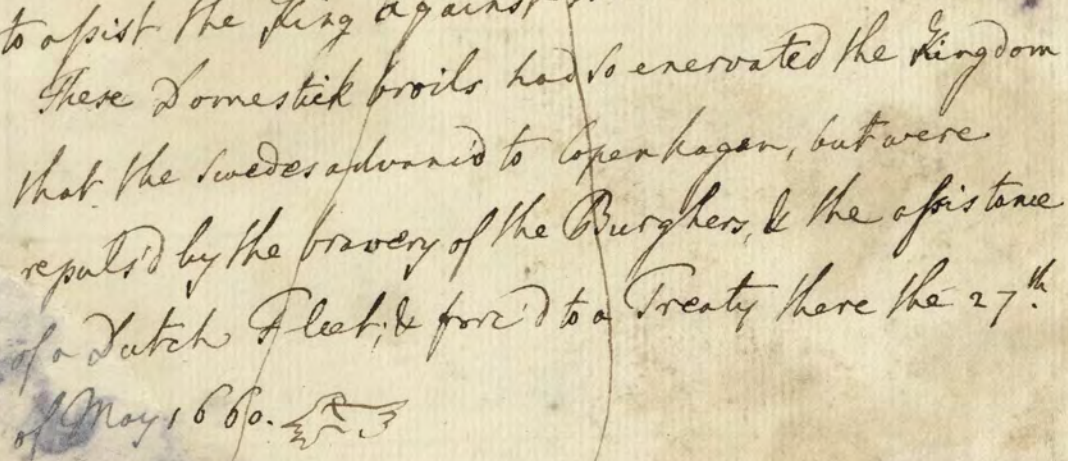 to assist the King against
These Domestick broils had so enervated the Kingdom
that the Swedes advanc'd to Copenhagen, but were
repuls'd by the bravery of the Burghers, & the assistance
of a Dutch Fleet; & forc'd to a Treaty there the 27th.
of May 1660.